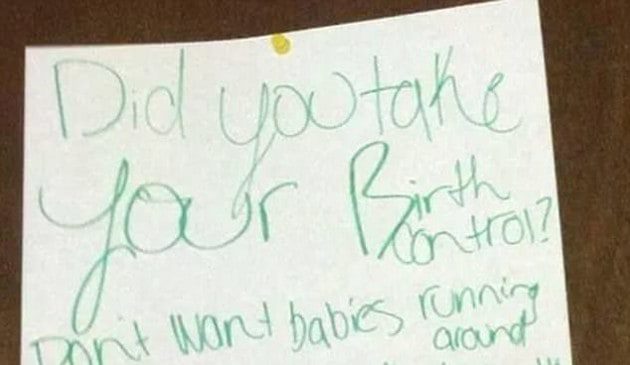 Did you take
your Birth
control?
Don't want babies running
around